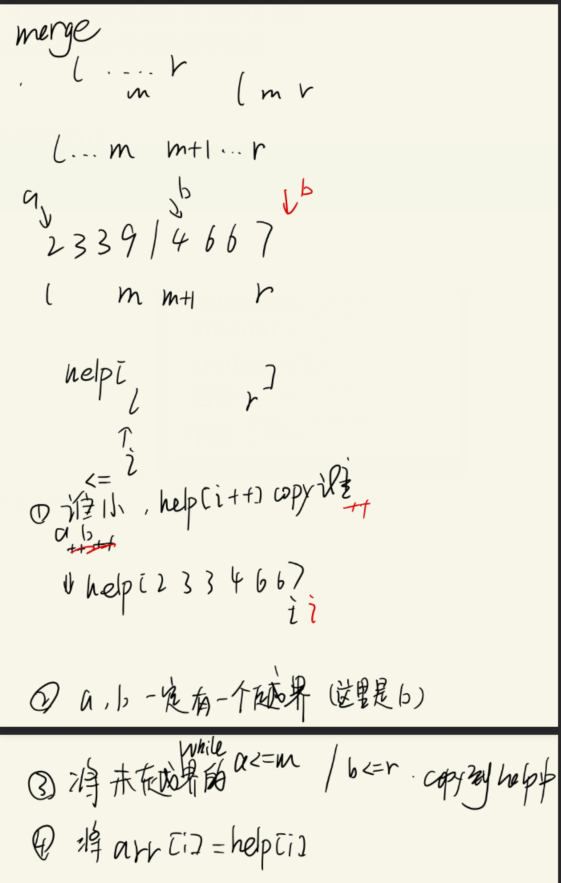 merge
l .... r
m
l m r
l...m m+1...r
a b b
2 3 3 9 | 4 6 6 7
l m m+1 r
help[ ]
l r
↑
i
<=
① 谁小, help[i++] copy谁
++
a b
++ ++
↓ help[2 3 3 4 6 6 7
i i
② a, b 一定有一个越界 (这里是b)
while
③ 将未越界的 a<=m / b<=r. copy到help中
④ 将 arr[i]=help[i]